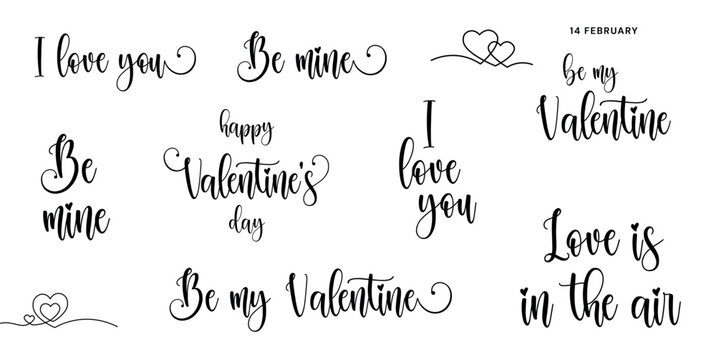 I love you
Be mine
14 FEBRUARY
be my
Valentine
Be
mine
happy
Valentine's
day
I
love
you
Love is
in the air
Be my Valentine